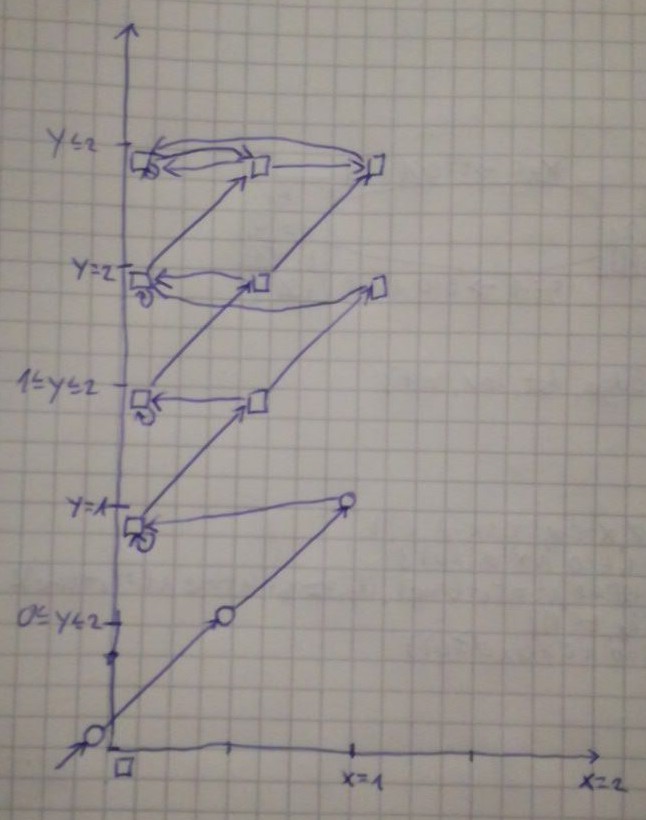 y≤2
y=2
1≤y≤2
y=1
0≤y≤2
x=1
x=2